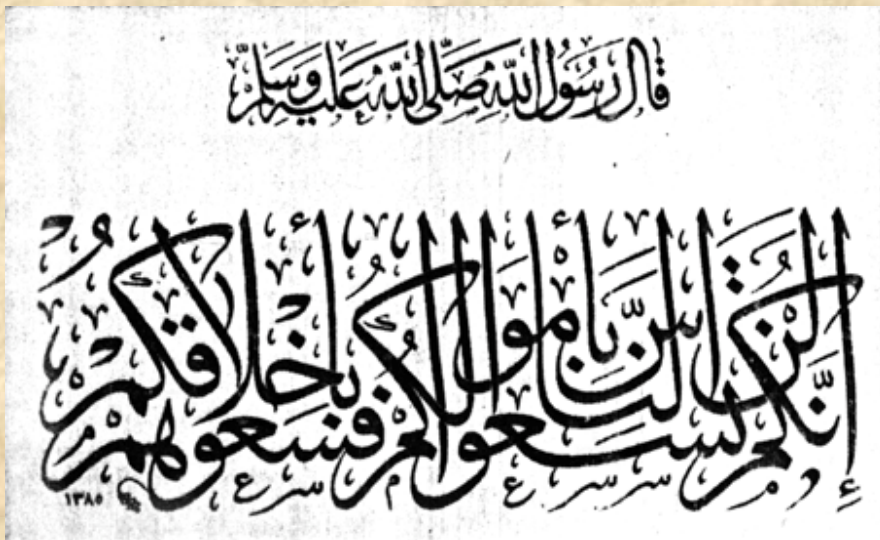 قَالَ رَسُولُ اللَّهِ صَلَّى اللَّهُ عَلَيْهِ وَسَلَّمَ
إِنَّكُمْ لَنْ تَسَعُوا النَّاسَ بِأَمْوَالِكُمْ فَسَعُوهُمْ بِأَخْلَاقِكُمْ
١٣٨٥